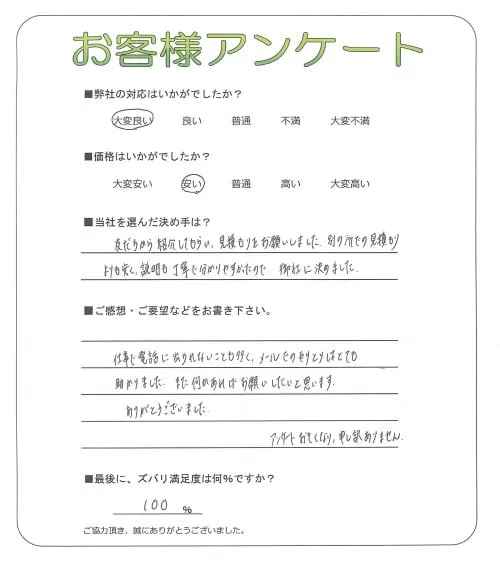 お客様アンケート
■弊社の対応はいかがでしたか？
大変良い 良い 普通 不満 大変不満
■価格はいかがでしたか？
大変安い 安い 普通 高い 大変高い
■当社を選んだ決め手は？
友だちから紹介してもらい、見積もりをお願いしました。別の所での見積もり
よりも安く、説明も丁寧で分かりやすかったので 御社に決めました。
■ご感想・ご要望などをお書き下さい。
仕事で電話に出られないことも多く、メールでのやりとりはとても
助かりました。また何かあればお願いしたいと思います。
ありがとうございました。
アンケートおそくなり、申し訳ありません。
■最後に、ズバリ満足度は何%ですか？
100 %
ご協力頂き、誠にありがとうございました。